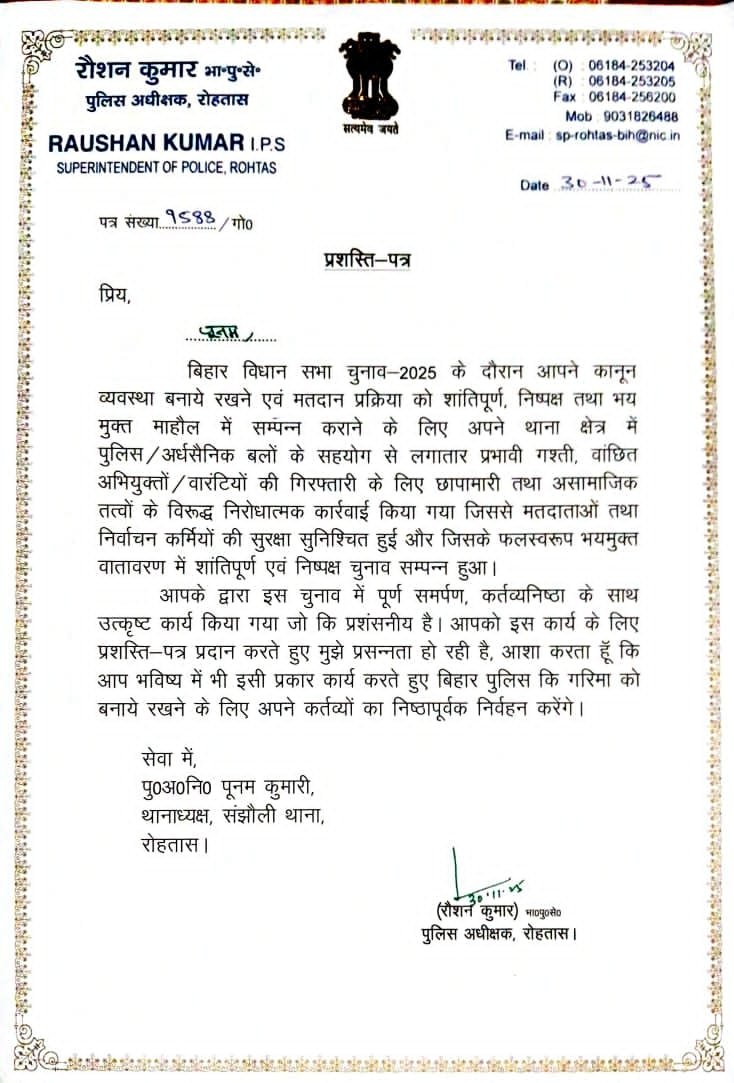 रौशन कुमार भा॰पु॰से॰
पुलिस अधीक्षक, रोहतास
RAUSHAN KUMAR I.P.S
SUPERINTENDENT OF POLICE, ROHTAS
सत्यमेव जयते
Tel. : (O) : 06184-253204
(R) : 06184-253205
Fax : 06184-256200
Mob : 9031826488
E-mail : sp-rohtas-bih@nic.in
Date 30-11-25
पत्र संख्या 9588/गो0
प्रशस्ति–पत्र
प्रिय,
पूनम,
बिहार विधान सभा चुनाव–2025 के दौरान आपने कानून
व्यवस्था बनाये रखने एवं मतदान प्रक्रिया को शांतिपूर्ण, निष्पक्ष तथा भय
मुक्त माहौल में सम्पन्न कराने के लिए अपने थाना क्षेत्र में
पुलिस/अर्धसैनिक बलों के सहयोग से लगातार प्रभावी गश्ती, वांछित
अभियुक्तों/वारंटियों की गिरफ्तारी के लिए छापामारी तथा असामाजिक
तत्वों के विरूद्ध निरोधात्मक कार्रवाई किया गया जिससे मतदाताओं तथा
निर्वाचन कर्मियों की सुरक्षा सुनिश्चित हुई और जिसके फलस्वरूप भयमुक्त
वातावरण में शांतिपूर्ण एवं निष्पक्ष चुनाव सम्पन्न हुआ।
आपके द्वारा इस चुनाव में पूर्ण समर्पण, कर्तव्यनिष्ठा के साथ
उत्कृष्ट कार्य किया गया जो कि प्रशंसनीय है। आपको इस कार्य के लिए
प्रशस्ति–पत्र प्रदान करते हुए मुझे प्रसन्नता हो रही है, आशा करता हूँ कि
आप भविष्य में भी इसी प्रकार कार्य करते हुए बिहार पुलिस कि गरिमा को
बनाये रखने के लिए अपने कर्तव्यों का निष्ठापूर्वक निर्वहन करेंगे।
सेवा में,
पु0अ0नि0 पूनम कुमारी,
थानाध्यक्ष, संझौली थाना,
रोहतास।
30.11.25
(रौशन कुमार) भा0पु0से0
पुलिस अधीक्षक, रोहतास।